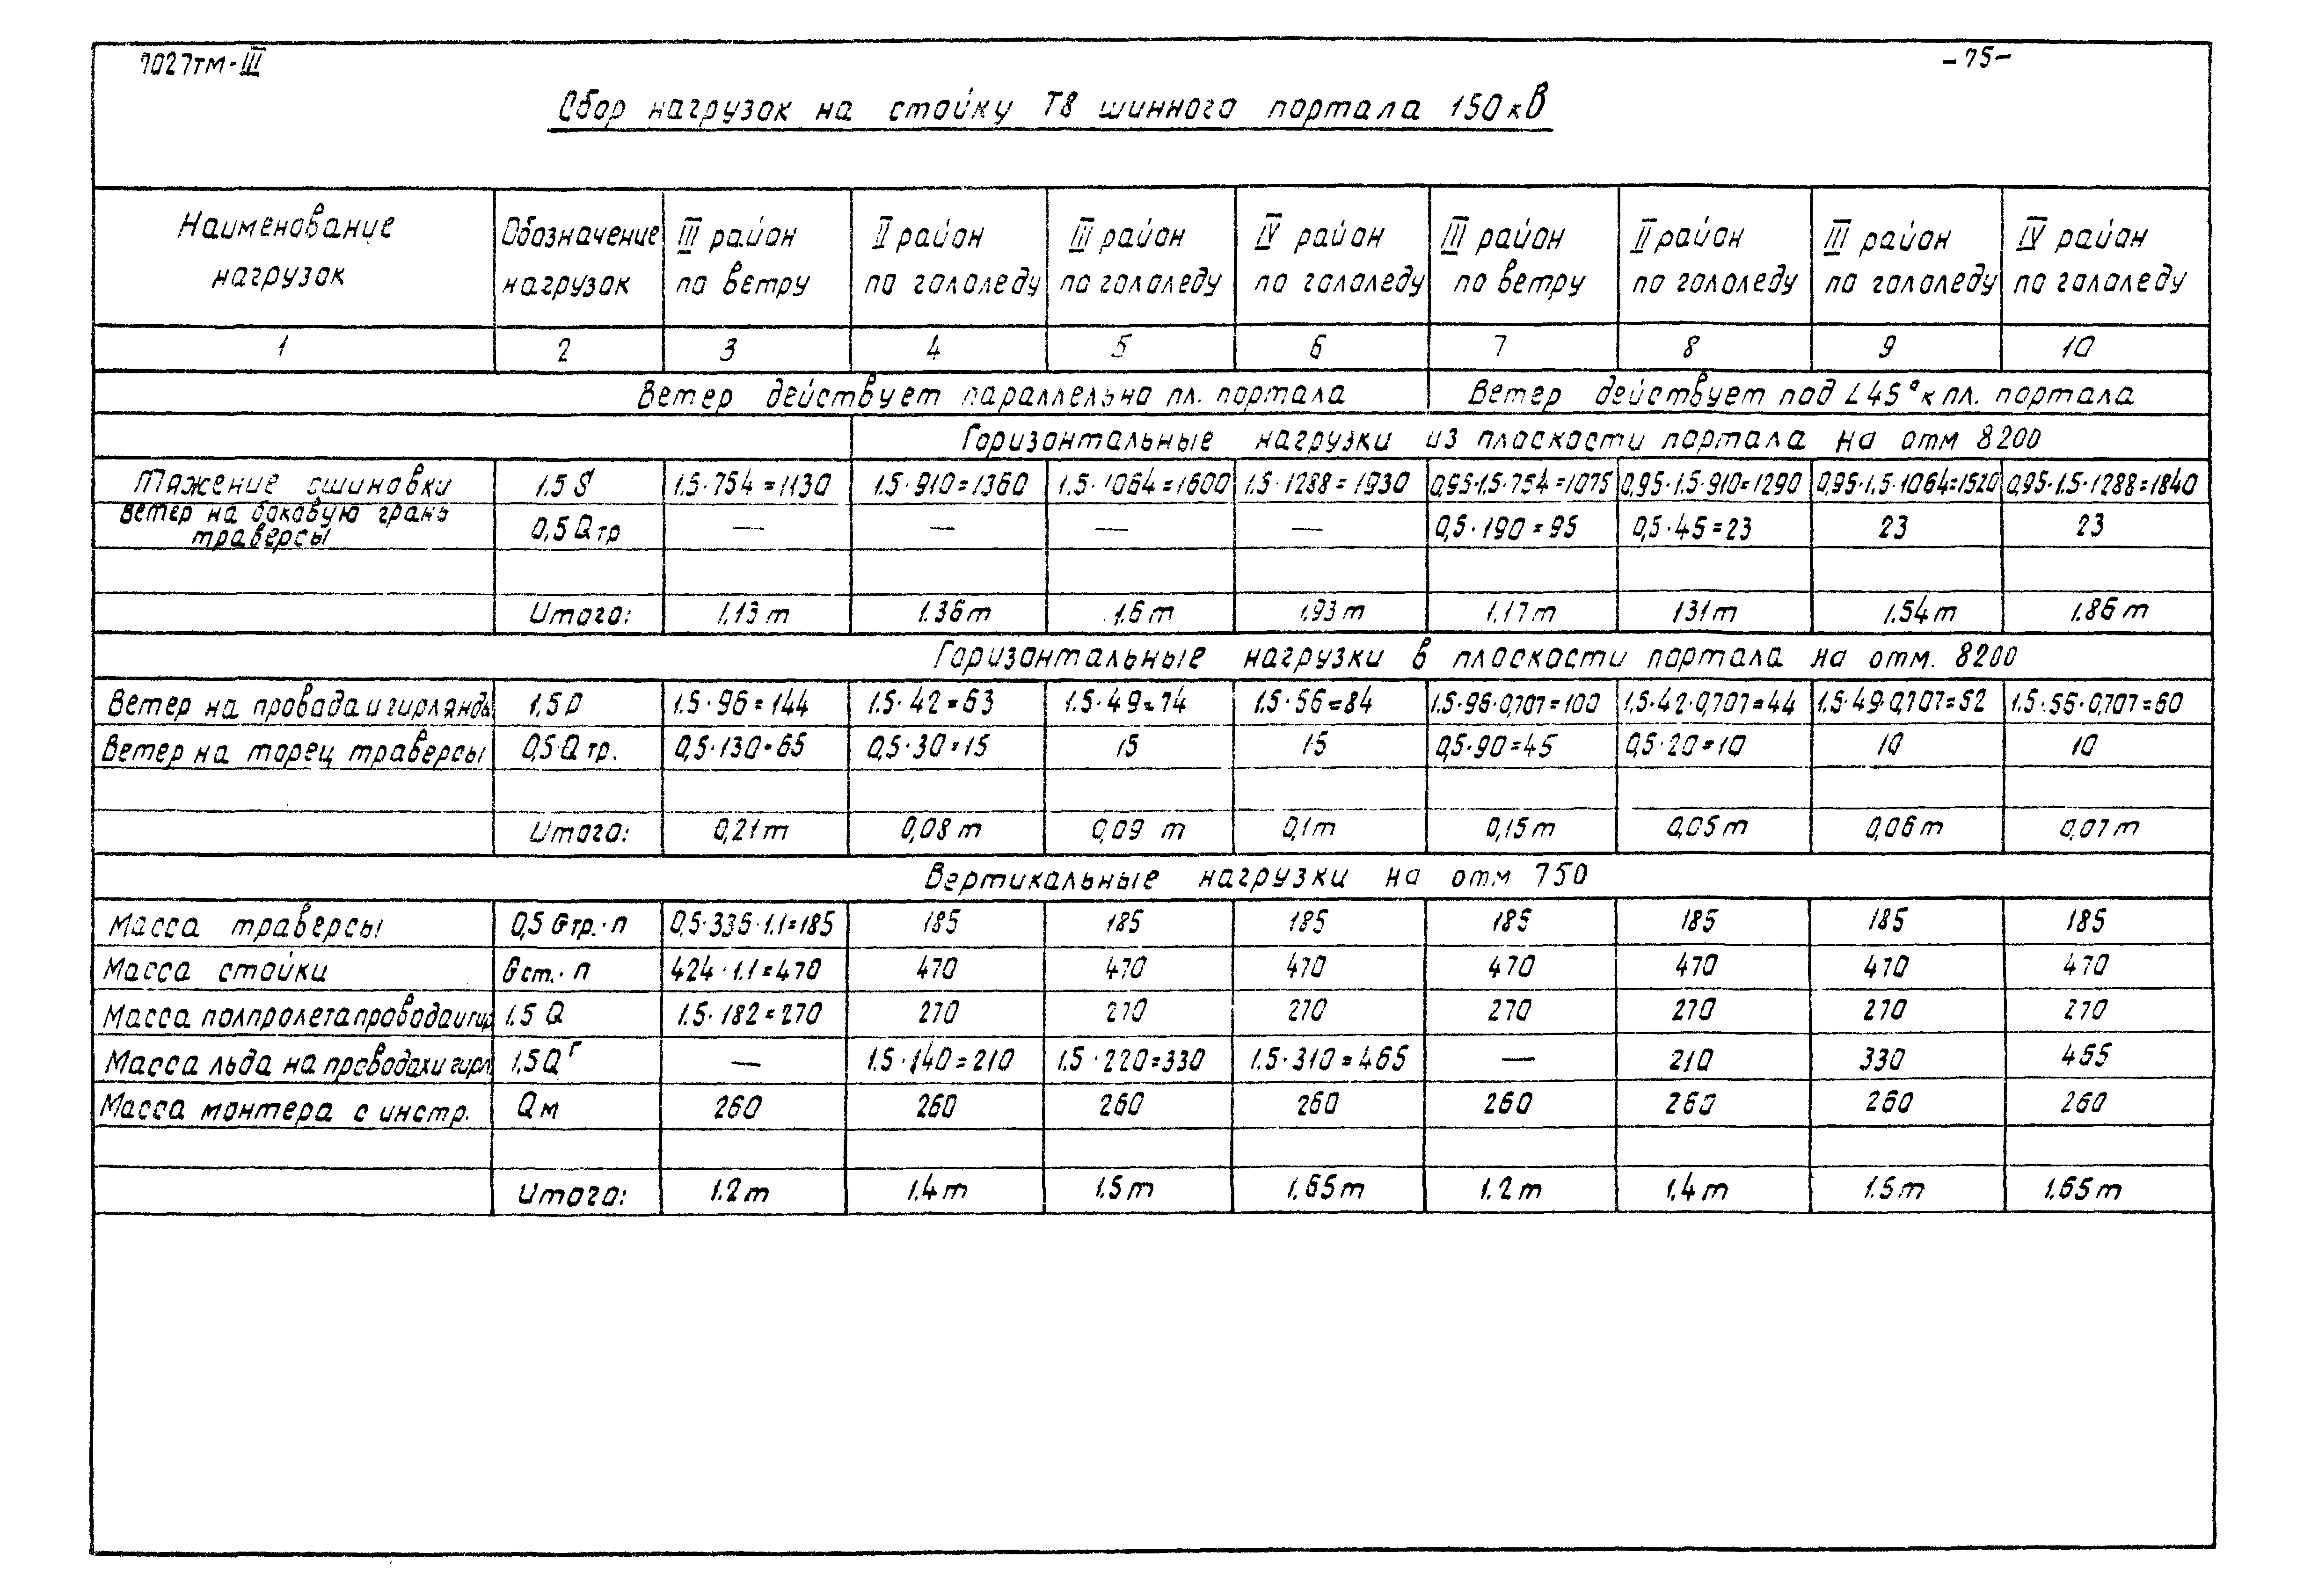 7027тм-III
-75-
Сбор нагрузок на стойку Т8 шинного портала 150кВ
Наименование нагрузок | Обозначение нагрузок | III район по ветру | II район по гололеду | III район по гололеду | IV район по гололеду | III район по ветру | II район по гололеду | III район по гололеду | IV район по гололеду
1 | 2 | 3 | 4 | 5 | 6 | 7 | 8 | 9 | 10
Ветер действует параллельно пл. портала | Ветер действует под ∠45° к пл. портала
Горизонтальные нагрузки из плоскости портала на отм 8200
Тяжение ошиновки | 1.5 S | 1.5·754=1130 | 1.5·910=1360 | 1.5·1064=1600 | 1.5·1288=1930 | 0,95·1.5·754=1075 | 0,95·1.5·910=1290 | 0,95·1.5·1064=1520 | 0,95·1.5·1288=1840
Ветер на боковую грань траверсы | 0,5 Qтр | — | — | — | — | 0,5·190=95 | 0,5·45=23 | 23 | 23
Итого: | 1.13т | 1.36т | 1.6т | 1,93т | 1,17т | 131т | 1.54т | 1.86т
Горизонтальные нагрузки в плоскости портала на отм. 8200
Ветер на провода и гирлянды | 1,5 P | 1.5·96=144 | 1.5·42=63 | 1.5·49=74 | 1.5·56=84 | 1.5·96·0,707=100 | 1.5·42·0,707=44 | 1.5·49·0,707=52 | 1.5·56·0,707=60
Ветер на торец траверсы | 0,5·Qтр. | 0,5·130=65 | 0,5·30=15 | 15 | 15 | 0,5·90=45 | 0,5·20=10 | 10 | 10
Итого: | 0,21т | 0,08т | 0,09 т | 0,1т | 0,15т | 0,05т | 0,06т | 0,07т
Вертикальные нагрузки на отм 750
Масса траверсы | 0,5 Gтр.·п | 0,5·335·1.1=185 | 185 | 185 | 185 | 185 | 185 | 185 | 185
Масса стойки | Gст.·п | 424·1.1=470 | 470 | 470 | 470 | 470 | 470 | 470 | 470
Масса полпролета провода и гир | 1.5 Q | 1.5·182=270 | 270 | 270 | 270 | 270 | 270 | 270 | 270
Масса льда на проводах и гирл | 1,5Qг | — | 1.5·140=210 | 1.5·220=330 | 1.5·310=465 | — | 210 | 330 | 465
Масса монтера с инстр. | Qм | 260 | 260 | 260 | 260 | 260 | 260 | 260 | 260
Итого: | 1.2т | 1,4т | 1.5т | 1.65т | 1.2т | 1.4т | 1.5т | 1.65т